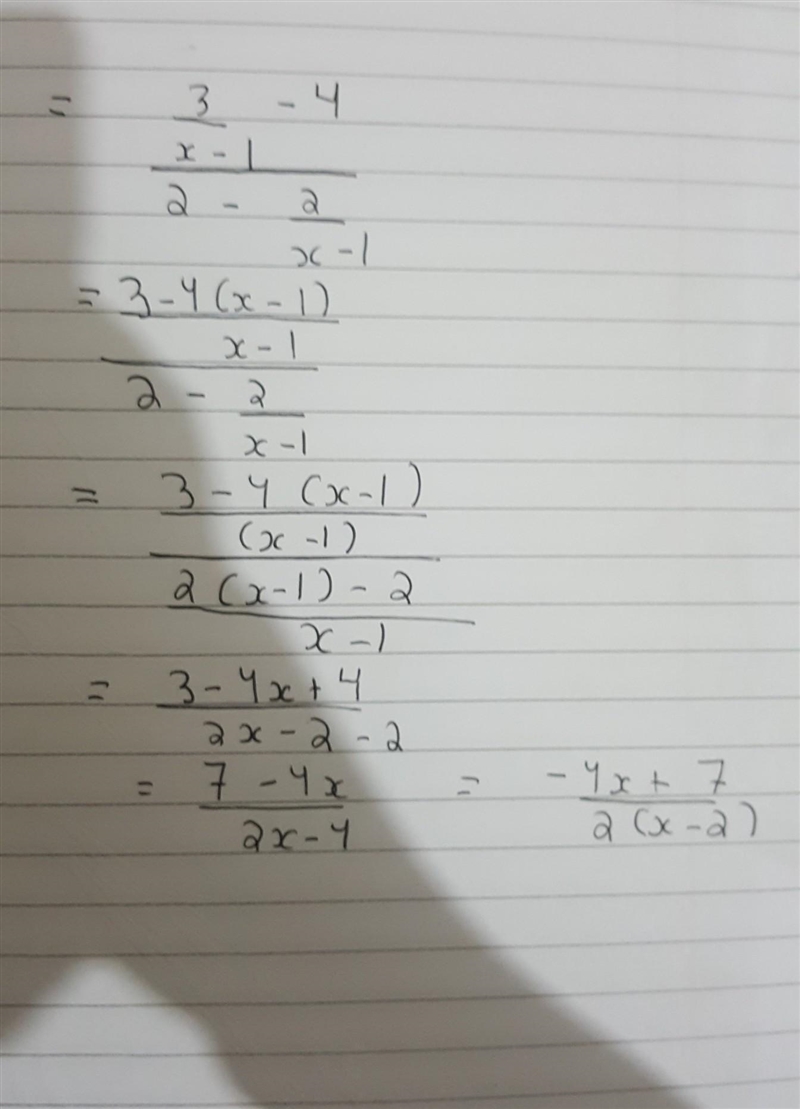 = 3 - 4
x - 1
2 - 2
x - 1
= 3 - 4 (x - 1)
x - 1
2 - 2
x - 1
= 3 - 4 (x - 1)
(x - 1)
2 (x - 1) - 2
x - 1
= 3 - 4x + 4
2x - 2 - 2
= 7 - 4x = - 4x + 7
2x - 4 2 (x - 2)